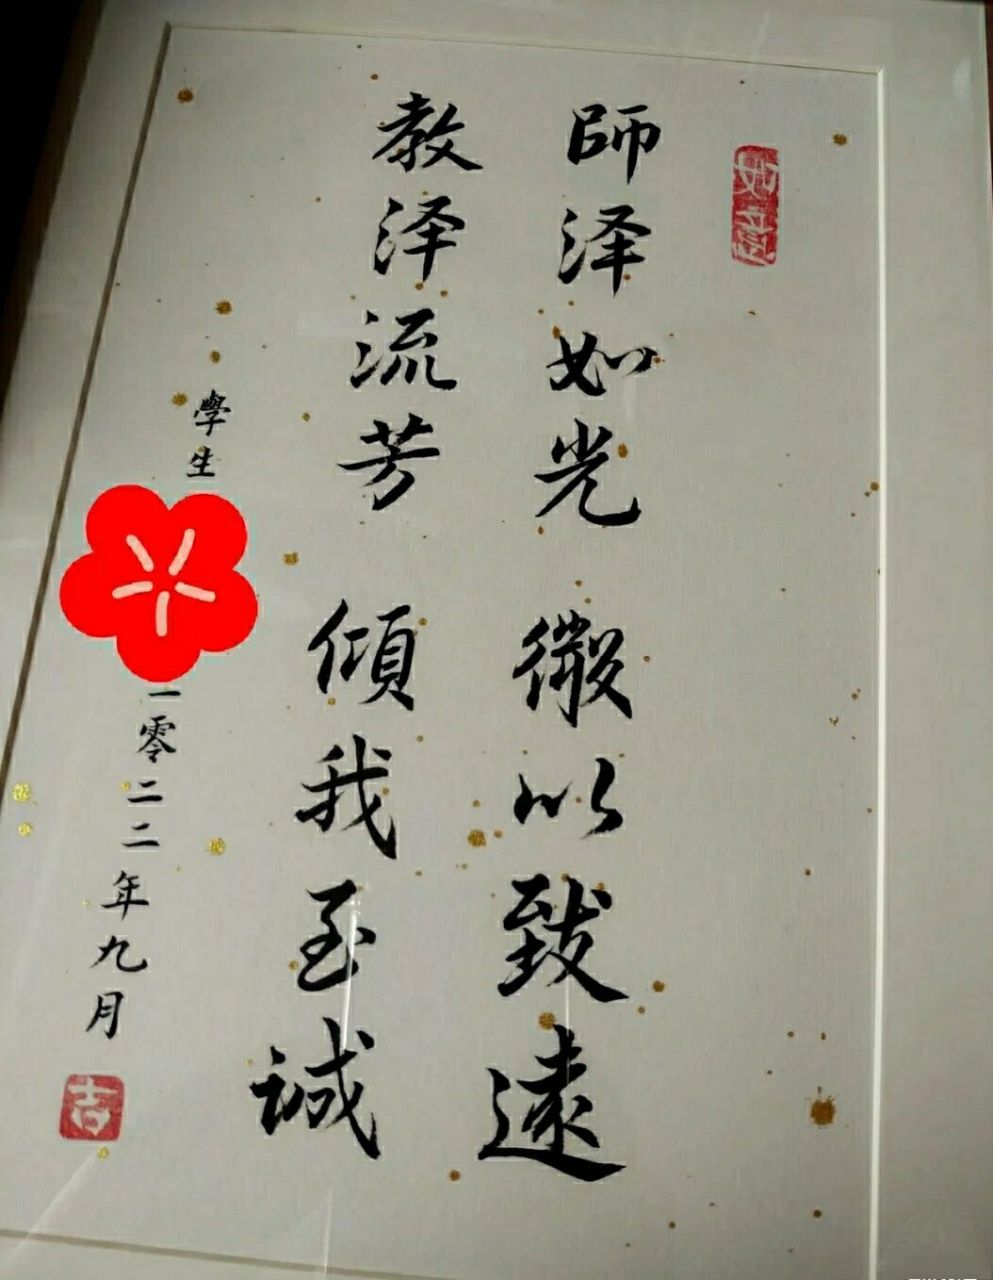 如意
師泽如光 微以致遠
教泽流芳 傾我至诚
學生
二零二二年九月
吉